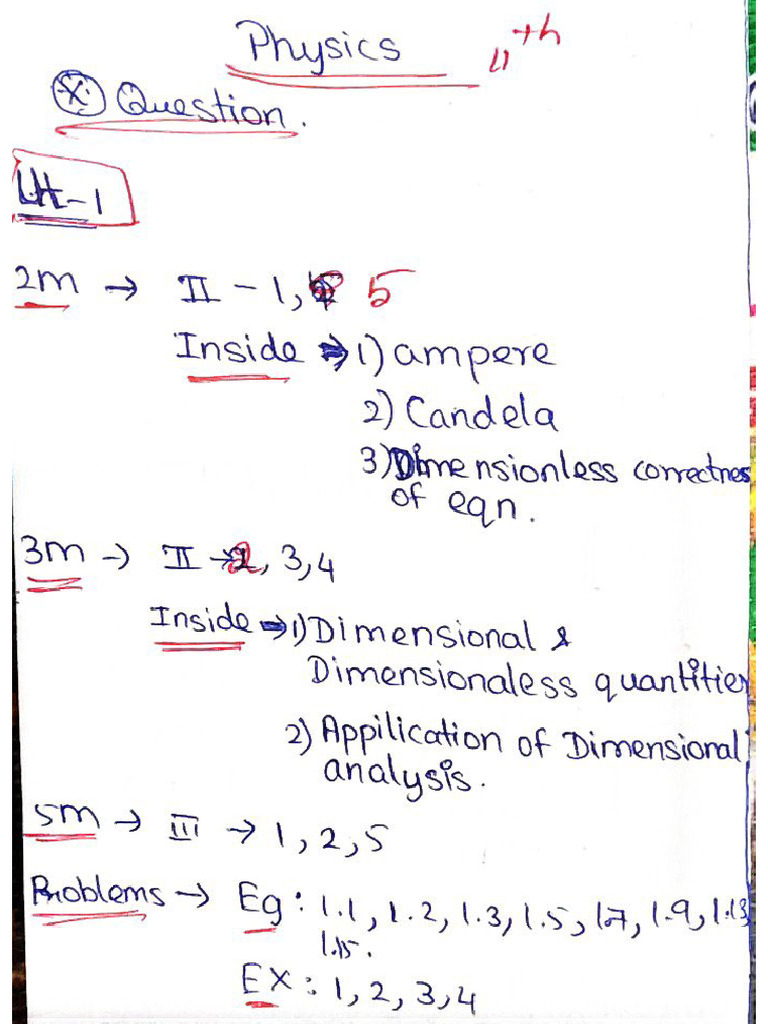 Physics 11th
Question.
Lt-1
2m → II - 1, 5
Inside → 1) ampere
2) Candela
3) Dimensionless correctness
of eqn.
3m → II → 2, 3, 4
Inside → 1) Dimensional &
Dimensionaless quantities
2) Appilication of Dimensional
analysis.
5m → III → 1, 2, 5
Problems → Eg : 1.1, 1.2, 1.3, 1.5, 1.7, 1.9, 1.13
1.15.
EX : 1, 2, 3, 4